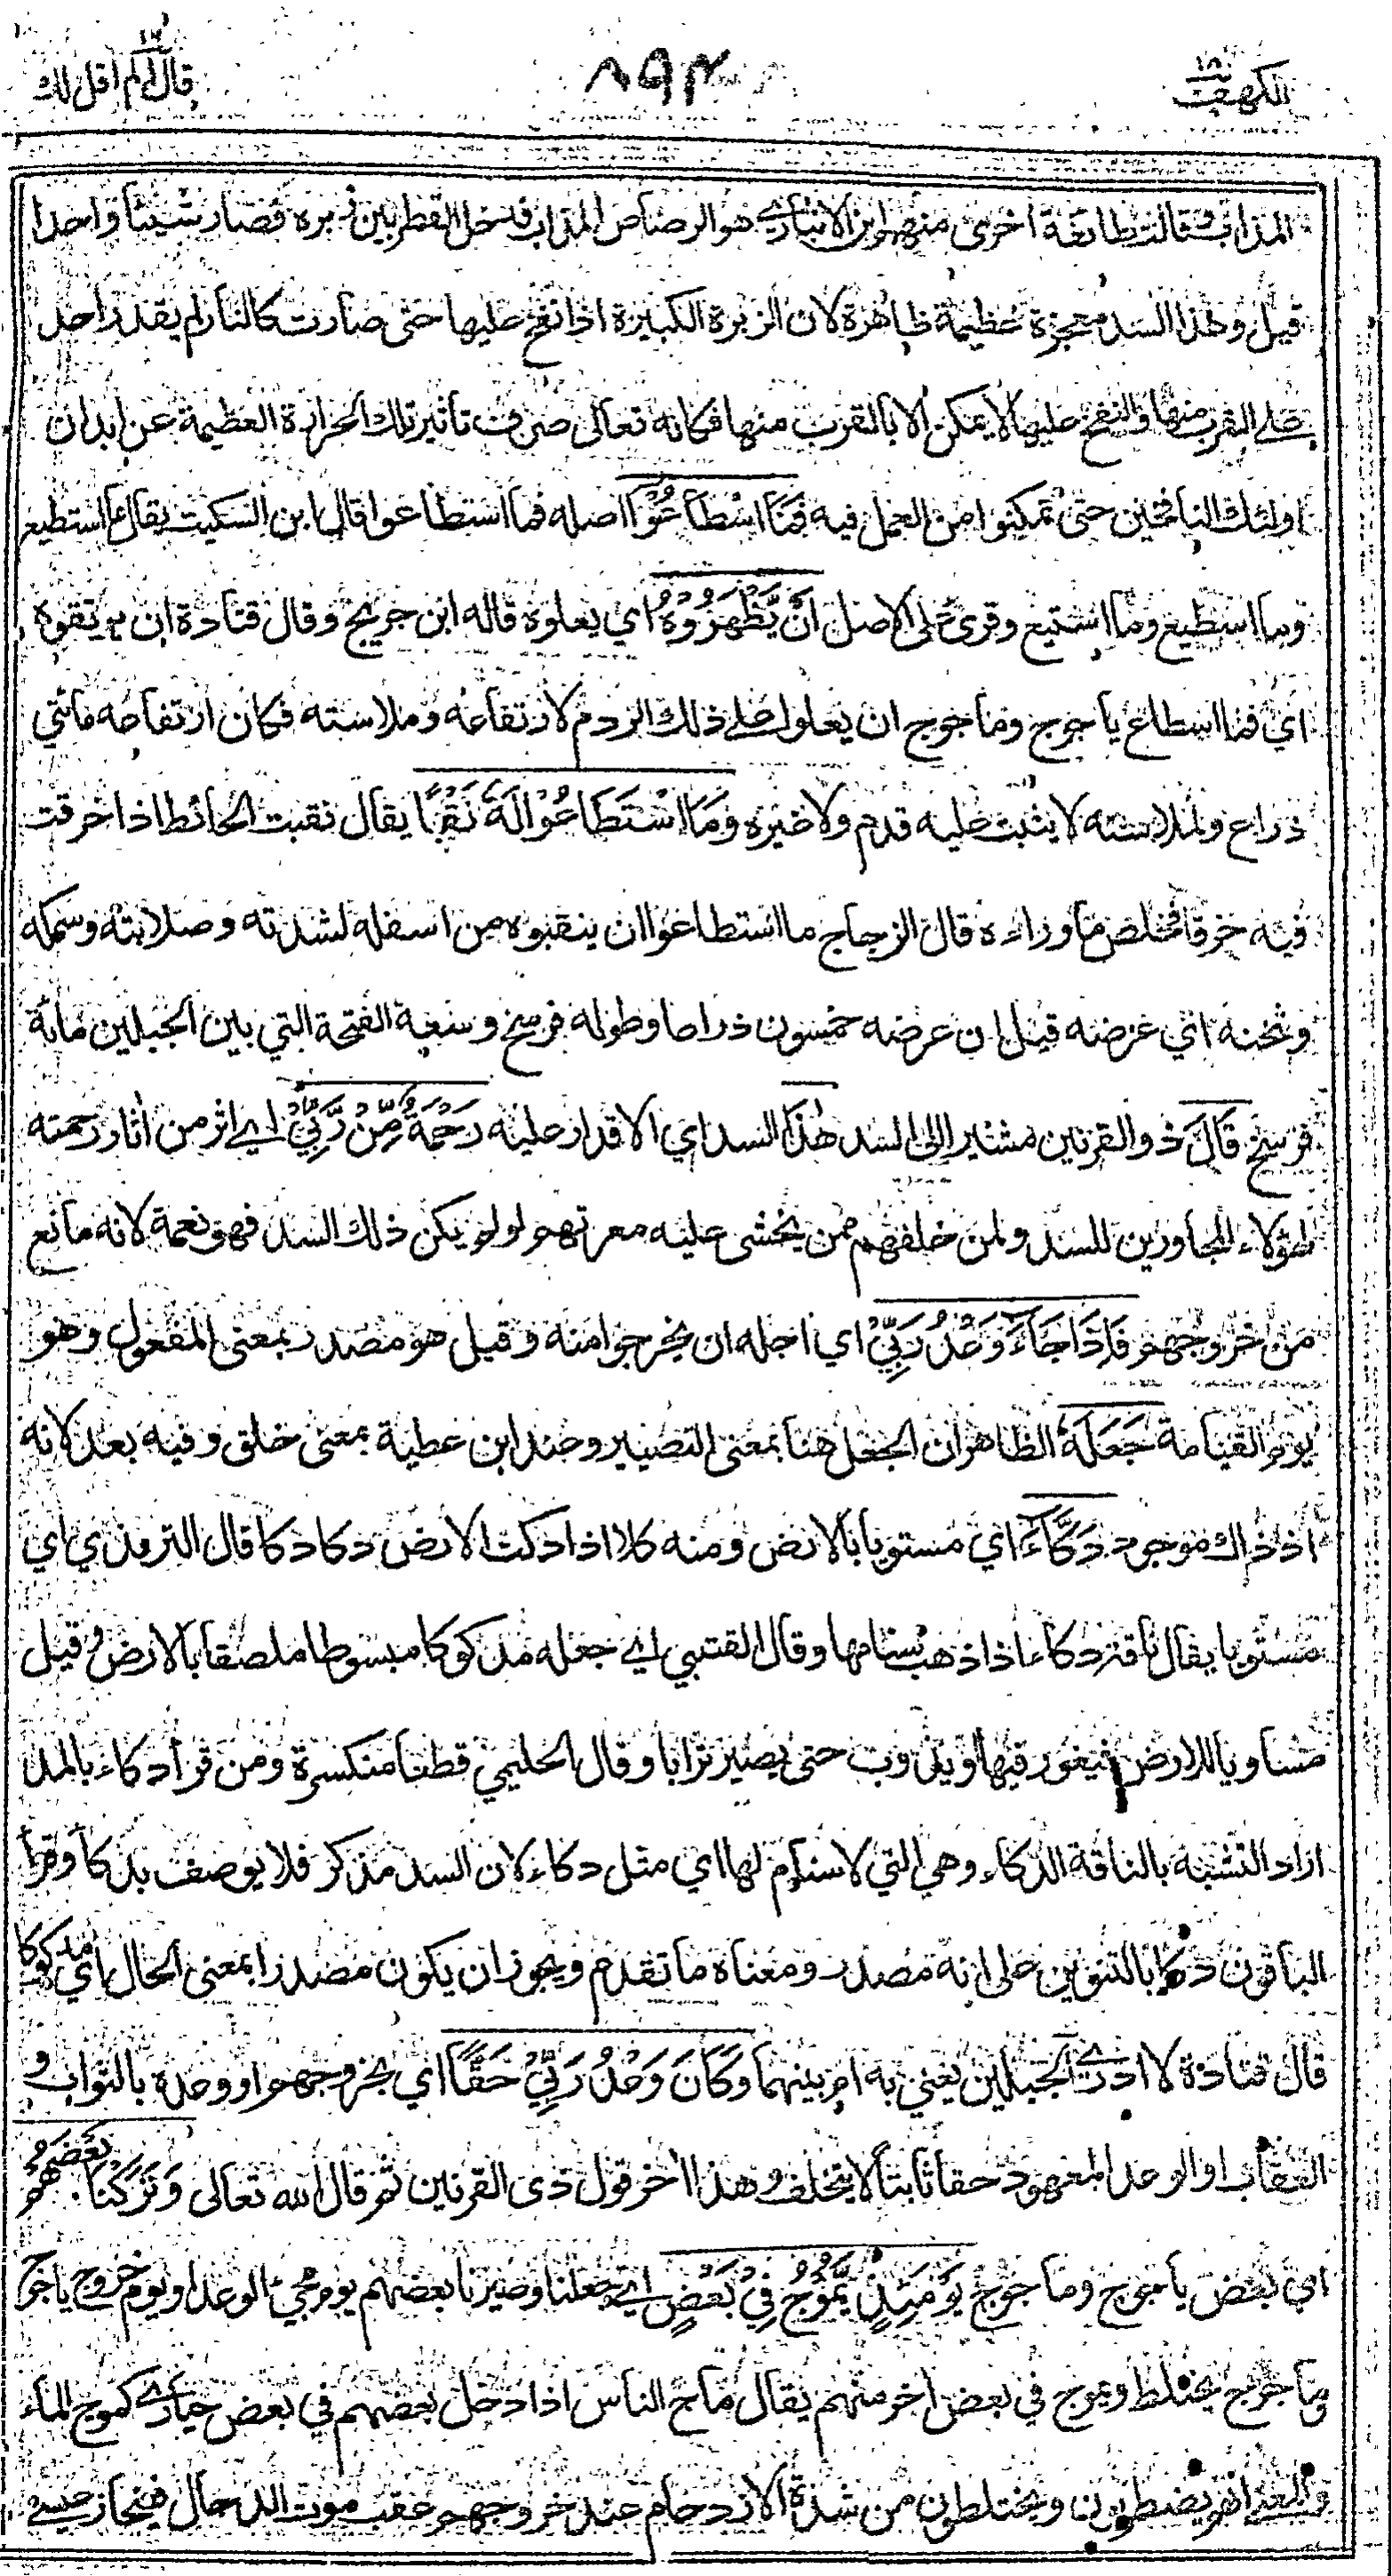 الكهف ١٨
٨٩٢
قال الم اقل لك ١٦
المذاب وقالت طائفة اخرى منهم ابن الانباري هو الرصاص المذاب فدخل القطر بين زبره فصار شيئا واحدا
قيل وهذا السد معجزة عظيمة ظاهرة لان الزبرة الكبيرة اذا نفخ عليها حتى صارت كالنار لم يقدر احد
على القرب منها والنفخ عليها لا يمكن الا بالقرب منها فكانه تعالى صرف تاثير تلك الحرارة العظيمة عن ابدان
اولئك النافخين حتى تمكنوا من العمل فيه فَمَا اسْطَاعُوْا اصله فما استطاعوا قال ابن السكيت يقال ما استطيع
وما اسطيع وما استيع وقرئ على الاصل اَنْ يَّظْهَرُوْهُ اي يعلوه قاله ابن جريج وقال قتادة ان يرتقوه
اي فما اسطاع ياجوج وماجوج ان يعلوا على ذلك الردم لارتفاعه وملاسته فكان ارتفاعه مائتي
ذراع ولملاسته لا يثبت عليه قدم ولا غيره وَمَا اسْتَطَاعُوْا لَهٗ نَقْبًا يقال نقبت الحائط اذا خرقت
فيه خرقا فخلص ما وراءه قال الزجاج ما استطاعوا ان ينقبوه من اسفله لشدته وصلابته وسمكه
وثخنه اي عرضه قيل ان عرضه خمسون ذراعا وطوله فرسخ وسعة الفتحة التي بين الجبلين مائة
فرسخ قَالَ ذو القرنين مشيرا الى السد هٰذَا السد اي الاقدار عليه رَحْمَةٌ مِّنْ رَّبِّيْ اي اثر من اثار رحمته
لهؤلاء المجاورين للسد ولمن خلفهم ممن يخشى عليه معرتهم لو لم يكن ذلك السد فهو نعمة لانه مانع
من خروجهم فَاِذَا جَآءَ وَعْدُ رَبِّيْ اي اجله ان يخرجوا منه وقيل هو مصدر بمعنى المفعول وهو
يوم القيامة جَعَلَهٗ الظاهر ان الجعل هنا بمعنى التصيير وعند ابن عطية بمعنى خلق وفيه بعد لانه
اذ ذاك موجود دَكَّآءَ اي مستويا بالارض ومنه كلا اذا دكت الارض دكا دكا قال الترمذي اي
مستويا يقال ناقة دكاء اذا ذهب سنامها وقال القتيبي اي جعله مدكوكا مبسوطا ملصقا بالارض وقيل
مساويا للارض فيغور فيها او يذوب حتى يصير ترابا وقال الحليمي قطعا منكسرة ومن قرأ دكاء بالمد
اراد التشبيه بالناقة الدكاء وهي التي لا سنام لها اي مثل دكاء لان السد مذكر فلا يوصف بدكاء وقرأ
الباقون دكا بالتنوين على انه مصدر ومعناه ما تقدم ويجوز ان يكون مصدرا بمعنى الحال اي مدكوكا
قال قتادة لا ادري الجبلين يعني به ام بينهما وَكَانَ وَعْدُ رَبِّيْ حَقًّا اي بخروجهم او وعده بالثواب و
العقاب او الوعد المعهود حقا ثابتا لا يتخلف وهذا اخر قول ذي القرنين ثم قال الله تعالى وَتَرَكْنَا بَعْضَهُمْ
اي بعض ياجوج وماجوج يَوْمَئِذٍ يَّمُوْجُ فِيْ بَعْضٍ اي جعلنا وصيرنا بعضهم يوم مجيئ الوعد او يوم خروج ياجوج
وماجوج يختلط ويموج في بعض اخر منهم يقال ماج الناس اذا دخل بعضهم في بعض حيارى كموج الماء
والمعنى انهم يضطربون ويختلطون من شدة الازدحام عند خروجهم عقب موت الدجال فينحاز عيسى